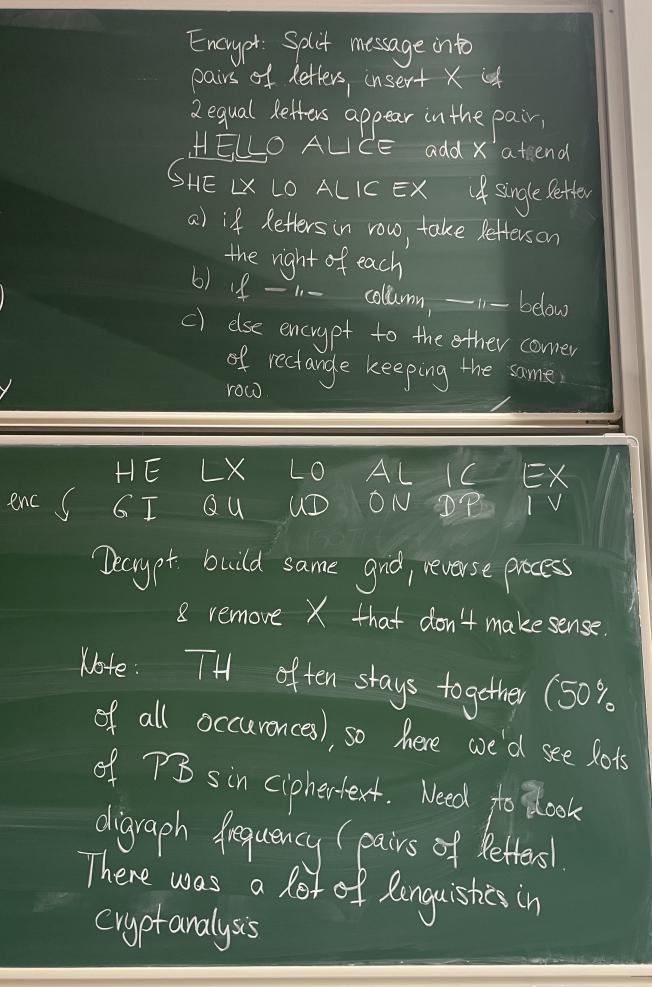 Encrypt: Split message into
pairs of letters, insert X if
2 equal letters appear in the pair,
HELLO ALICE add X at end
HE LX LO AL IC EX if single letter
a) if letters in row, take letters on
the right of each
b) if —"— column, —"— below
c) else encrypt to the other corner
of rectange keeping the same
row.
HE LX LO AL IC EX
enc GI QU UD ON DP IV
Decrypt: build same grid, reverse process
& remove X that don't make sense.
Note: TH often stays together (50%
of all occurences), so here we'd see lots
of PB s in ciphertext. Need to look
digraph frequency (pairs of letters).
There was a lot of linguistics in
cryptanalysis